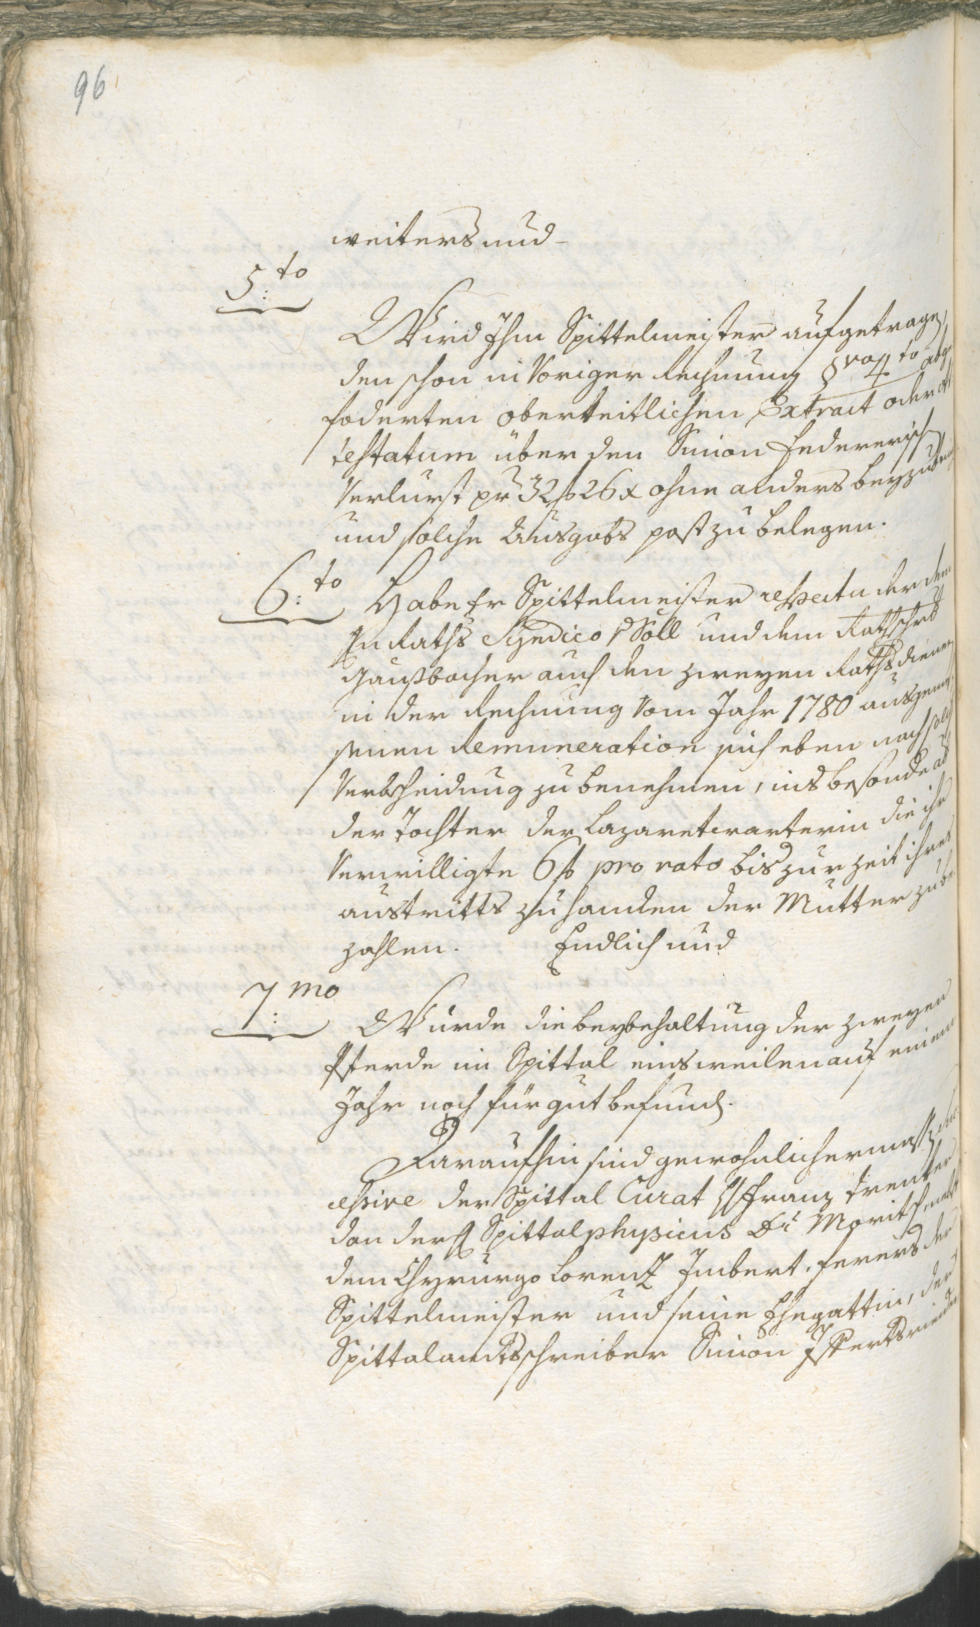 96
weiters und
5:to
Wird Ihm Spittelmeister aufgetragen,
den schon in voriger Rechnung §vo 4to abge
foderten oberkeitlichen Extract oder At
testatum über den Simon Federerisch
Verlurst pr 32 f 26 x ohne anders beyzubring
und solche Ausgabs post zu belegen.
6:to Habe Er Spittelmeister respectu der dem
In Raths Syndico v Söll und dem Rathschrb
Gaußbacher auch den zweyen Rathsdienern
in der Rechnung vom Jahr 1780 ausgewor
fenen Remuneration sich eben nach solch
Verbscheidung zu benehmen, insbesonde aber
der Tochter der Lazaretwarterin die ihr
Verwilligte 6 f pro rato bis zur Zeit ihres
austritts zu handen der Mutter zu be
zahlen. Endlich und
7:mo
Wurde die beybehaltung der zweyen
Pferde im Spittal einsweilen auf einem
Jahr noch für gut befund.
Daraufhin sind gewohnlichermassen suc
cessive der Spittal Curat H Franz Trenker
dan der H Spittalphysicus Dr Moritz
dem Chyrurgo Lorenz Imbert, ferers der
Spittelmeister und seine Ehegattin, der
Spittalamtsschreiber Simon